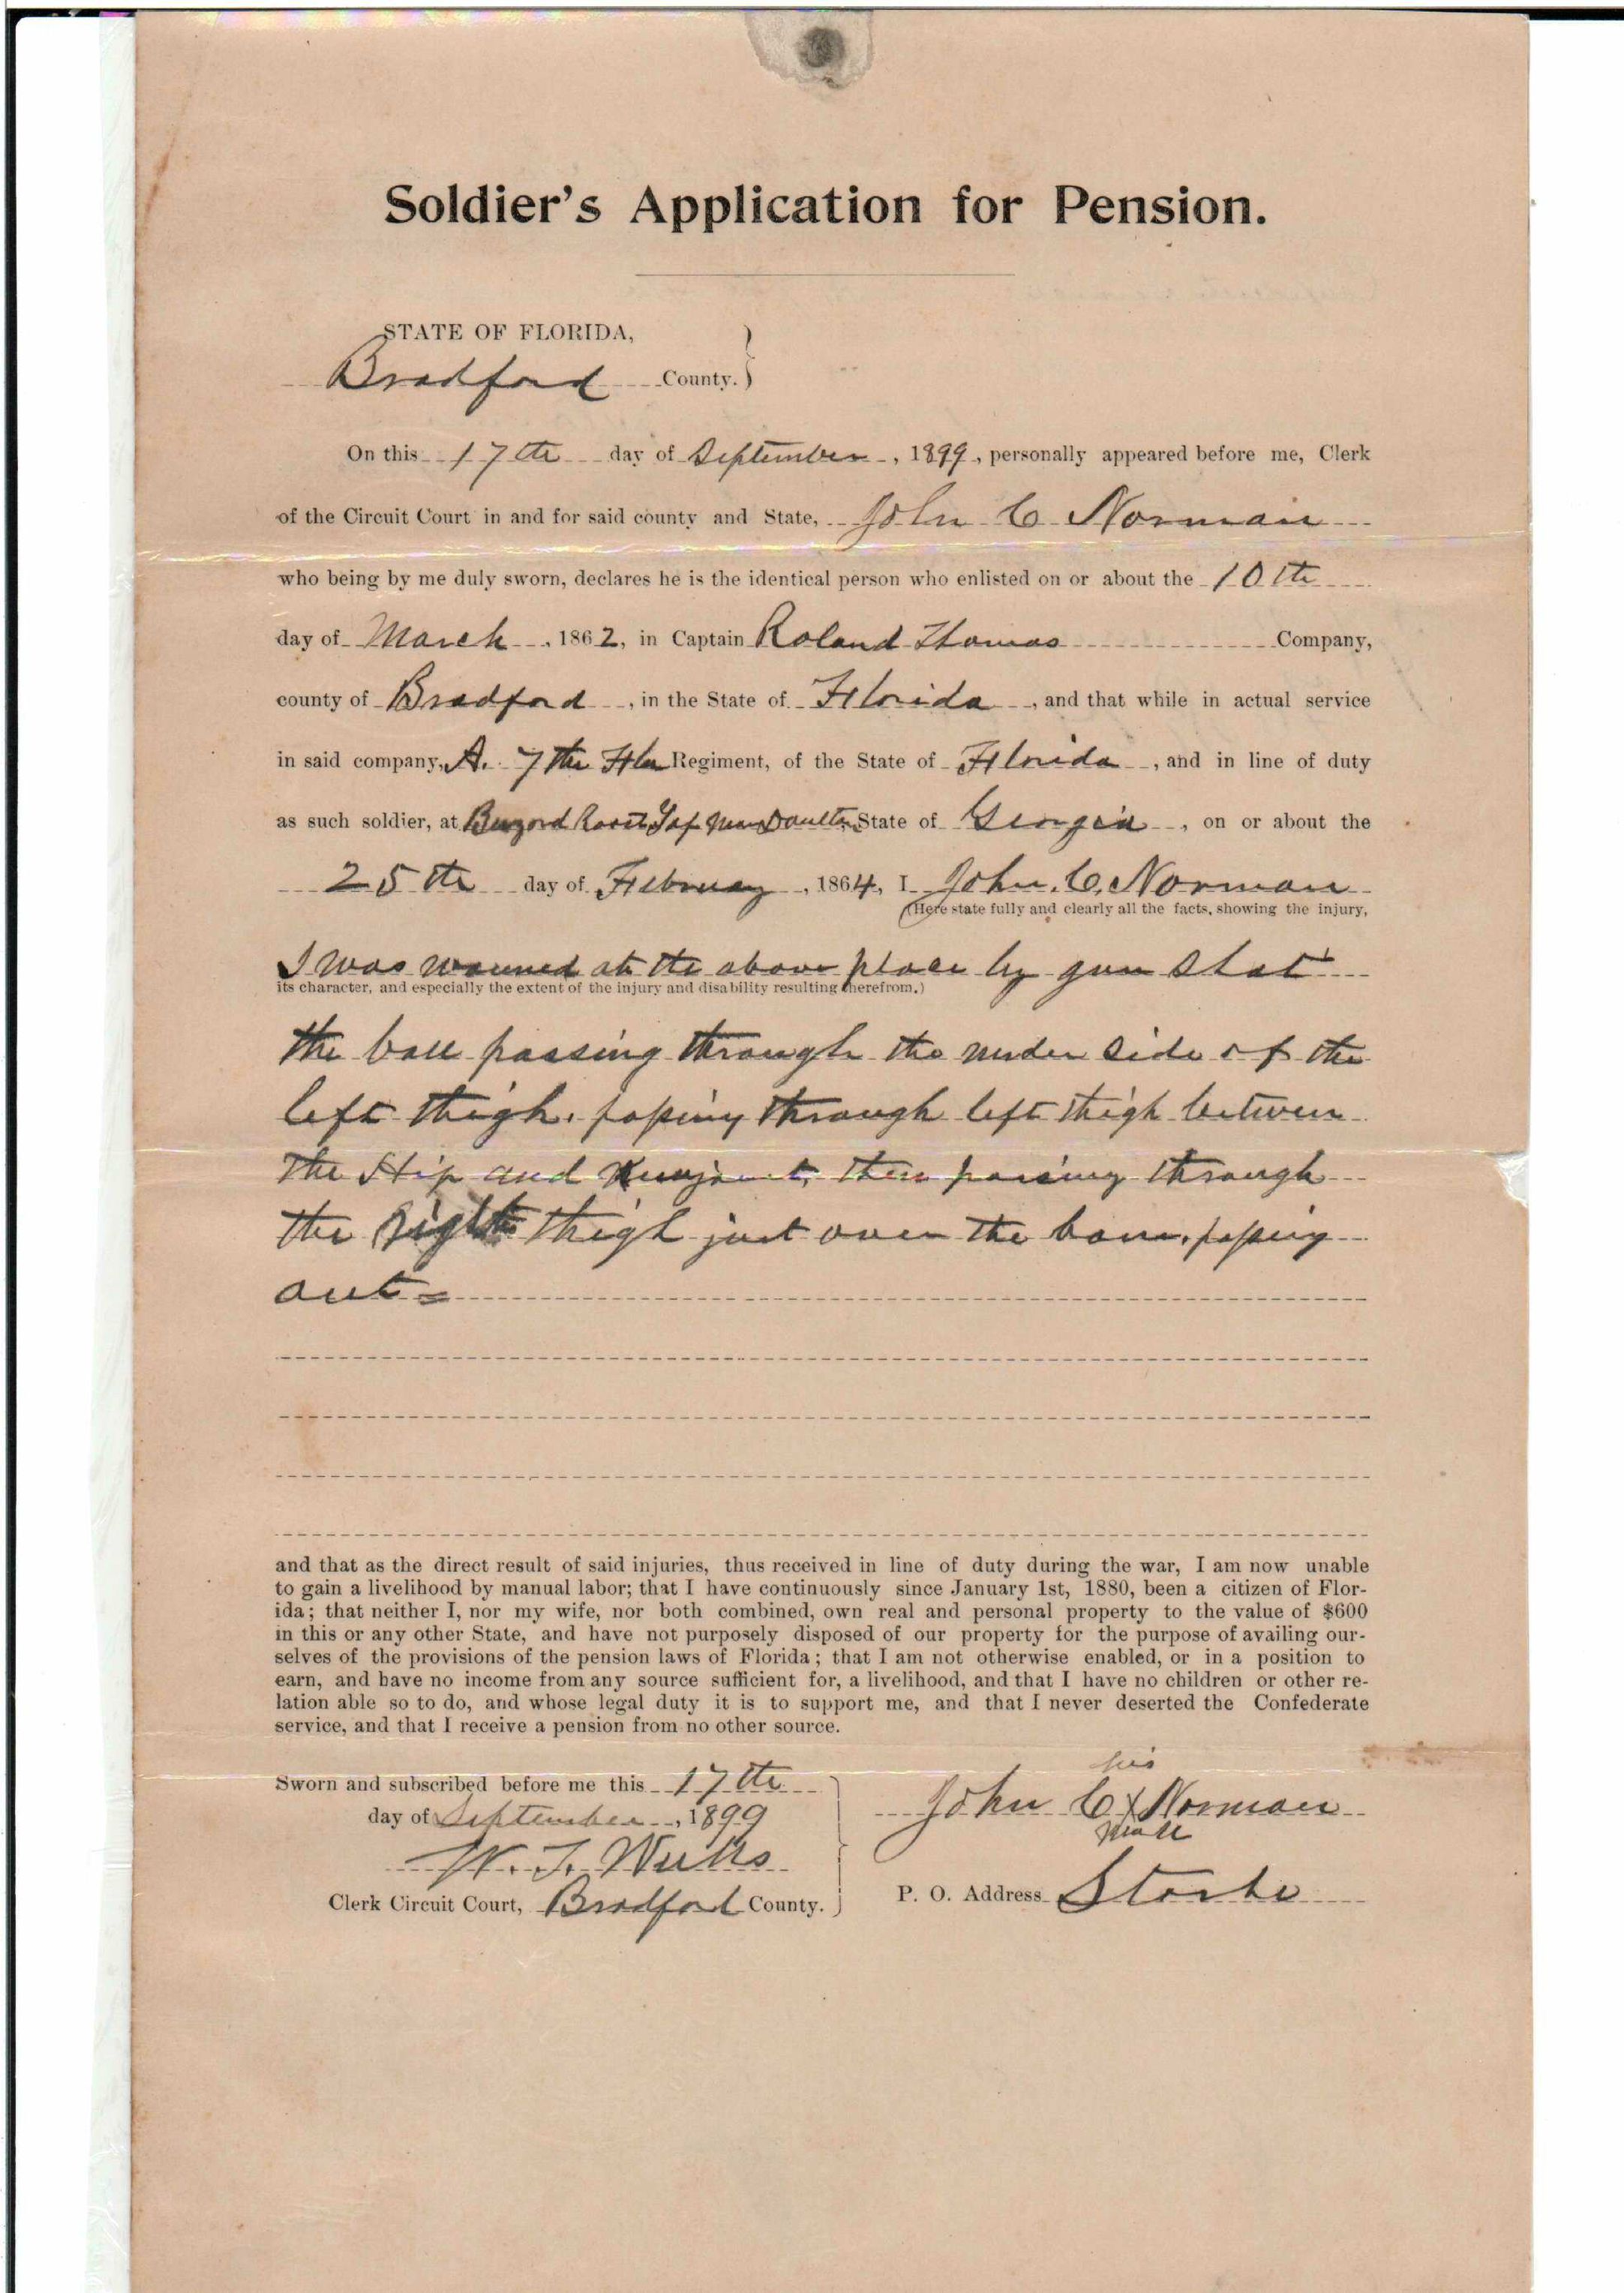 Soldier's Application for Pension.
STATE OF FLORIDA,
Bradford County. }
On this 17th day of September, 1899, personally appeared before me, Clerk
of the Circuit Court in and for said county and State, John C Norman
who being by me duly sworn, declares he is the identical person who enlisted on or about the 10th
day of March, 1862, in Captain Roland Thomas Company,
county of Bradford, in the State of Florida, and that while in actual service
in said company, A. 7th Fla Regiment, of the State of Florida, and in line of duty
as such soldier, at Buzard Roost Gap near Daulton, State of Georgia, on or about the
25th day of February, 1864, I John. C. Norman
(Here state fully and clearly all the facts, showing the injury,
I was wouned at the above place by gun shot
its character, and especially the extent of the injury and disability resulting therefrom.)
the ball passing through the under side of the
left thigh. passing through left thigh between
the Hip and then passing through
the Right thigh just over the bone, passing
out =
and that as the direct result of said injuries, thus received in line of duty during the war, I am now unable
to gain a livelihood by manual labor; that I have continuously since January 1st, 1880, been a citizen of Flor-
ida; that neither I, nor my wife, nor both combined, own real and personal property to the value of $600
in this or any other State, and have not purposely disposed of our property for the purpose of availing our-
selves of the provisions of the pension laws of Florida; that I am not otherwise enabled, or in a position to
earn, and have no income from any source sufficient for, a livelihood, and that I have no children or other re-
lation able so to do, and whose legal duty it is to support me, and that I never deserted the Confederate
service, and that I receive a pension from no other source.
Sworn and subscribed before me this 17th
day of September, 1899
W. T. Weeks
Clerk Circuit Court, Bradford County. }
his
John C X Norman
mark
P. O. Address Starke